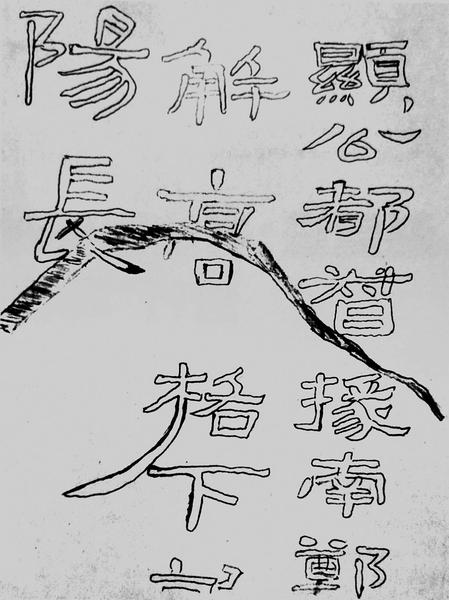 顯公都督掾南鄭
解高格下
陽長